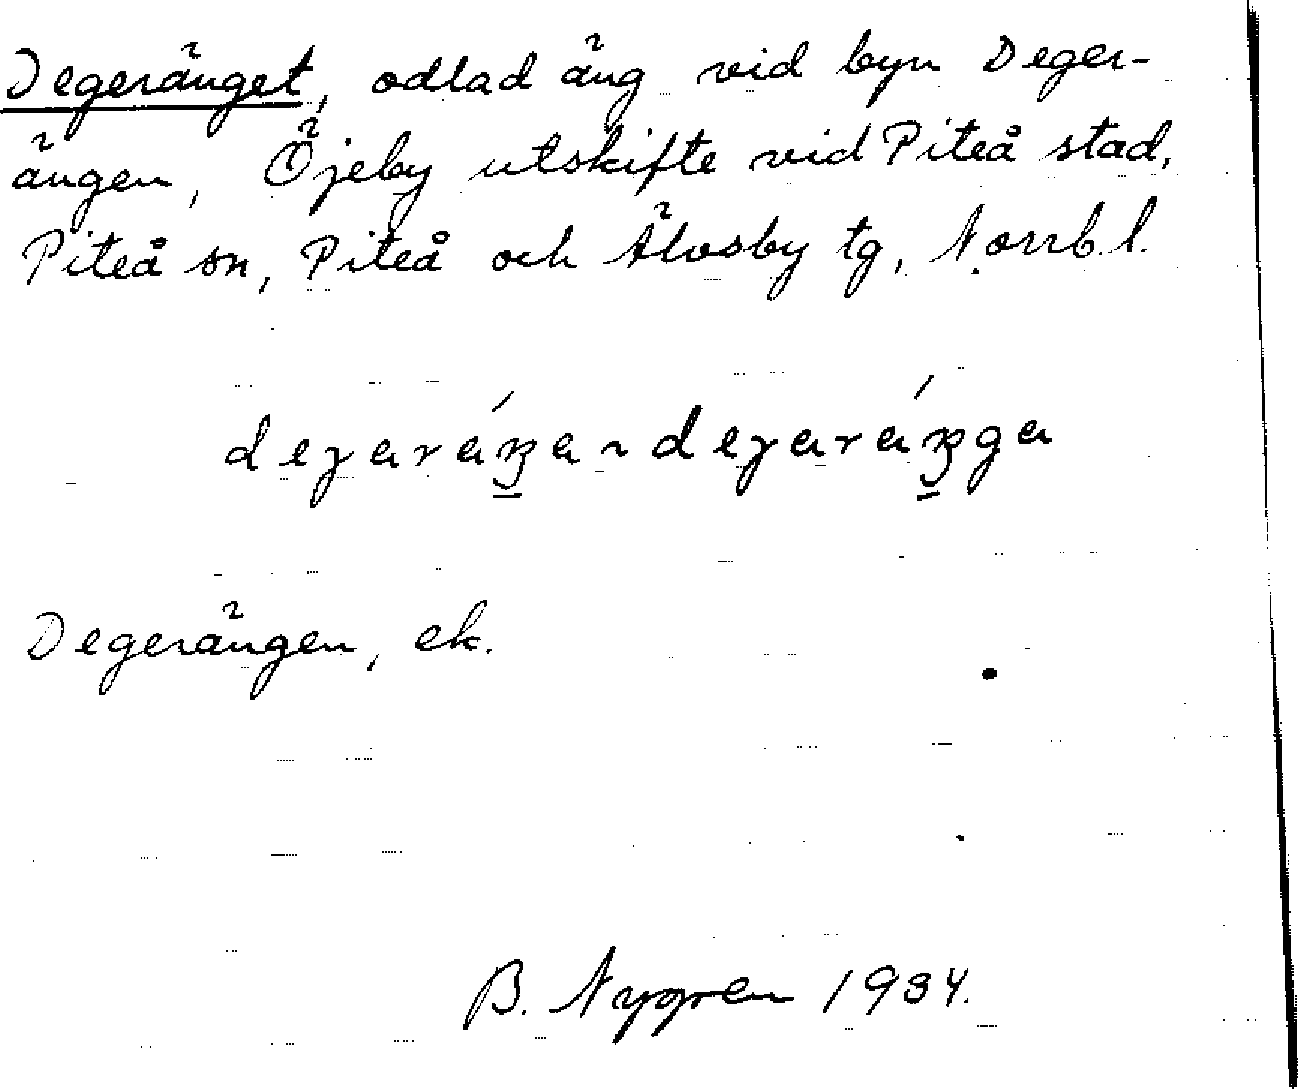 Degeränget, odlad äng vid byn Deger-
ängen, Öjeby utskifte vid Piteå stad,
Piteå sn, Piteå och Älvsby tg, Norrb. l.
Degerängen, ek.
B. Nygren 1934.